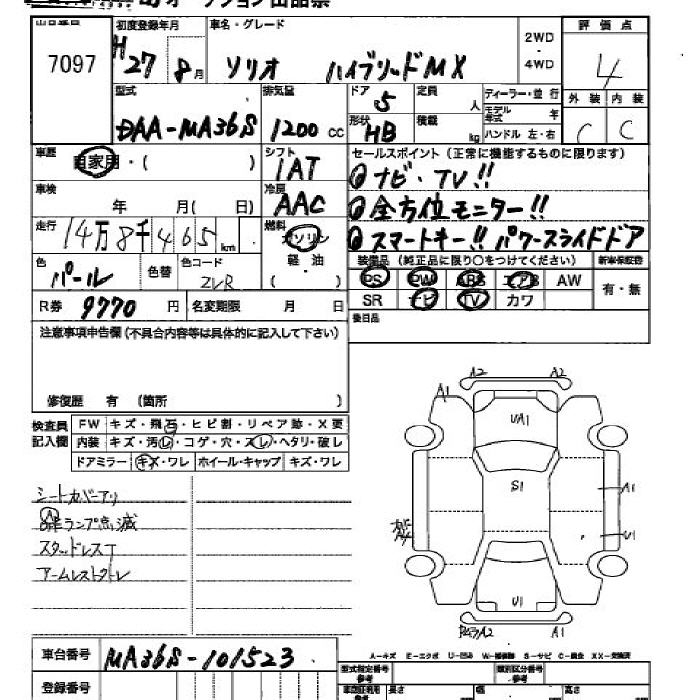 オークション出品票
出品番目
7097
初度登録年月
H 27 8月
車名・グレード
ソリオ ハイブリードMX
2WD
・
4WD
評価点
4
型式
DAA-MA36S
排気量
1200 cc
ドア 5
定員 人
形状 HB
積載 kg
ディーラー・並行
モデル年式 年
ハンドル 左・右
外装 内装
C C
車歴
自家用・( )
シフト
1AT
車検
年 月( 日)
冷房
AAC
セールスポイント(正常に機能するものに限ります)
①ナビ・TV!!
②全方位モニター!!
③スマートキー!! パワースライドドア
走行
14万8千465km
燃料
ガソリン
軽・油
( )
色
パール
色替
色コード
ZVR
装備品(純正品に限り○をつけてください)
新車保証書
PS PW ABS エアB AW
SR ナビ TV カワ
有・無
R券 9770円
名変期限 月 日
後日品
注意事項申告欄(不具合内容等は具体的に記入して下さい)
修復歴 有(箇所 )
検査員記入欄
FW キズ・飛石・ヒビ割・リペア跡・X更
内装 キズ・汚レ・コゲ・穴・スレ・ヘタリ・破レ
ドアミラー キズ・ワレ ホイール・キャップ キズ・ワレ
シートカバーアリ
ランプ点滅
スタッドレスT
アームレストトレ
A2 A2
UA1
S1
A1
U1
U1
A1
A-キズ E-エクボ U-凹み W-補修跡 S-サビ C-腐食 XX-交換済
車台番号
MA36S-101523
登録番号
型式指定番号
類別区分番号
長さ 幅 高さ